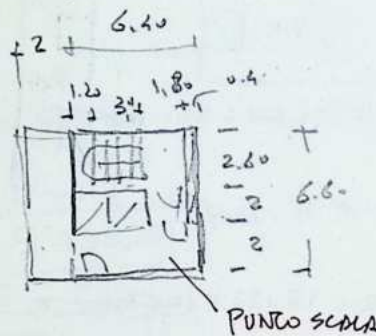 6.40
2
1.20 3,0 1,80 0.4
2.60
2 6.60
2
PUNTO SCALA